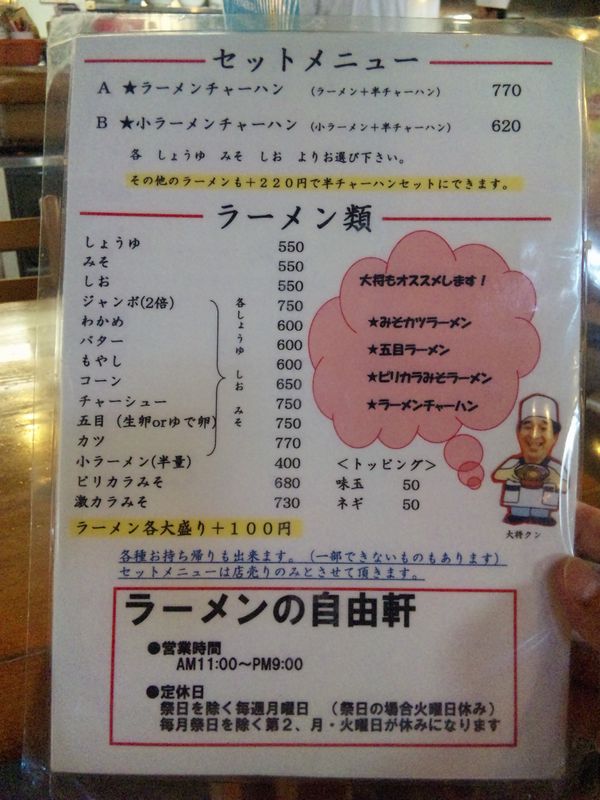 セットメニュー
A ★ラーメンチャーハン (ラーメン+半チャーハン) 770
B ★小ラーメンチャーハン (小ラーメン+半チャーハン) 620
各 しょうゆ みそ しお よりお選び下さい。
その他のラーメンも+220円で半チャーハンセットにできます。
ラーメン類
しょうゆ 550
みそ 550
しお 550
ジャンボ(2倍) 750
わかめ 600
バター 600
もやし 600
コーン 650
チャーシュー 750
五目 (生卵orゆで卵) 750
カツ 770
各しょうゆ しお みそ
小ラーメン(半量) 400
ピリカラみそ 680
激カラみそ 730
ラーメン各大盛り+100円
大将もオススメします!
★みそカツラーメン
★五目ラーメン
★ピリカラみそラーメン
★ラーメンチャーハン
大将クン
<トッピング>
味玉 50
ネギ 50
各種お持ち帰りも出来ます。(一部できないものもあります)
セットメニューは店売りのみとさせて頂きます。
ラーメンの自由軒
●営業時間
AM11:00~PM9:00
●定休日
祭日を除く毎週月曜日 (祭日の場合火曜日休み)
毎月祭日を除く第2、月・火曜日が休みになります